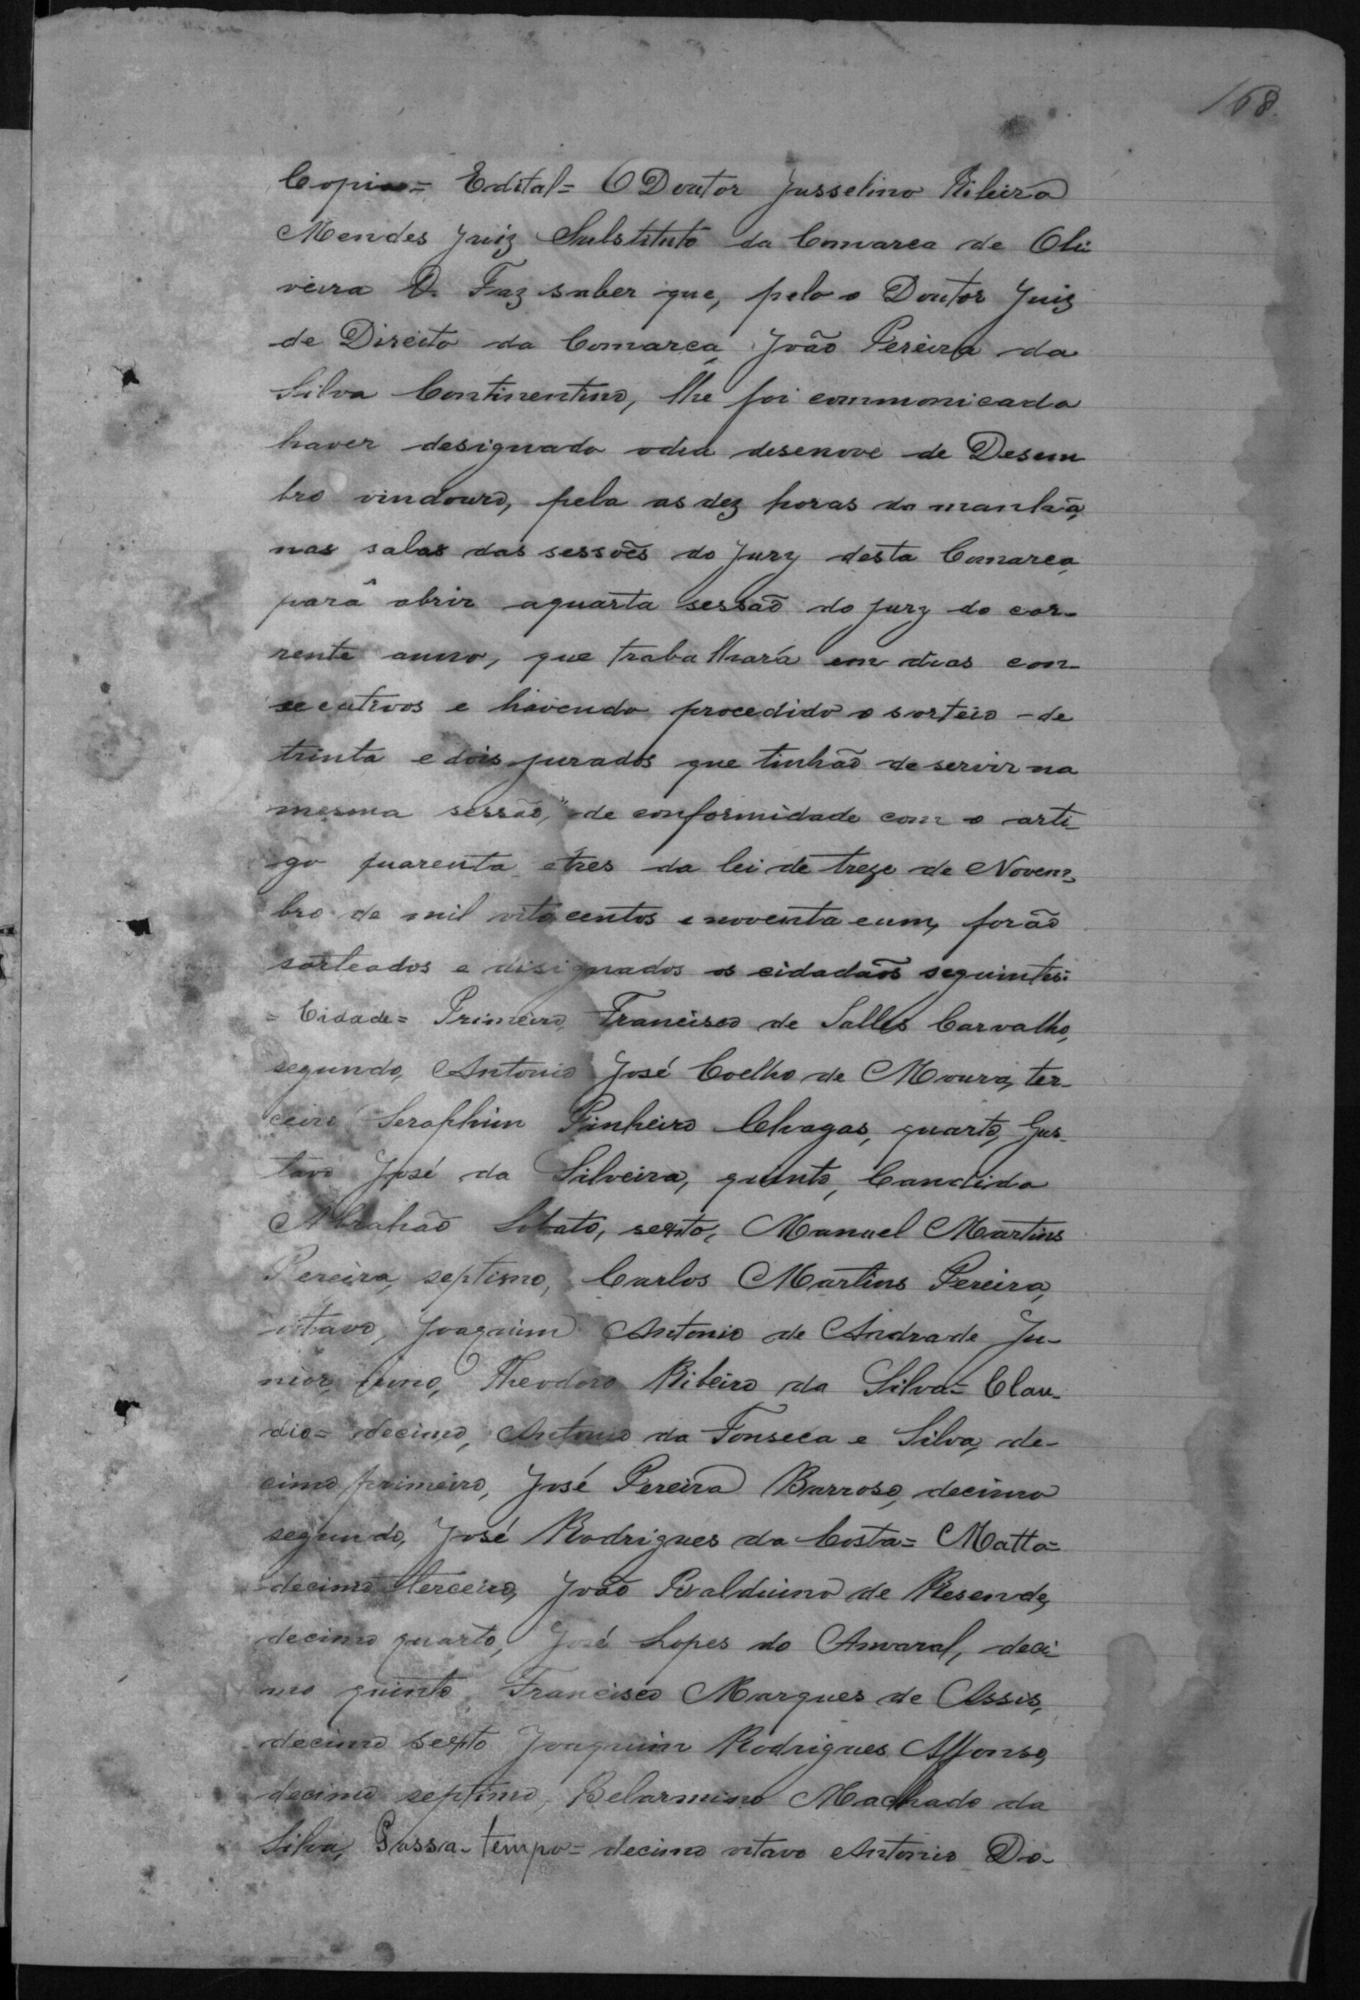 168
Copia= Edital= O Doutor Jusselino Ribeiro
Mendes Juiz Substituto da Comarca de Oli
veira Faz saber que, pelo o Doutor Juiz
de Direito da Comarca João Pereira da
Silva Continentino, lhe foi communicado
haver designado odia desenove de Desem
bro vindouro, pela as dez horas da manhã,
nas salas das sessões do Jury desta Comarca,
pará abrir aquarta sessão do jury do cor-
rente anno, que trabalhará em dias con-
secutivos e havendo procedido o sorteio -de
trinta e dois jurados que tinhão de servir na
mesma sessão, de conformidade com o arti-
go quarenta etres da lei de treze de Novem-
bro de mil oito centos e noventa eum, forão
sorteados e disignados os cidadãos seguintes:
= Cidade= Primeiro, Francisco de Salles Carvalho,
segundo, Antonio José Coelho de Moura, ter-
ceiro Seraphim Pinheiro Chagas, quarto, Gus-
tavo José da Silveira, quinto, Candido
Abrahão Lobato, sexto, Manuel Martins
Pereira, septimo, Carlos Martins Pereira,
oitavo, Joaquim Antonio de Andrade Ju-
nior, nono, Theodoro Ribeiro da Silva= Clau-
dio= decimo, Antonio da Fonseca e Silva, de-
cimo primeiro, José Pereira Barroso, decimo
segundo, José Rodrigues da Costa= Matta=
decimo terceiro, João Ribalduino de Resende,
decimo quarto, José Lopes do Amaral, deci-
mo quinto, Francisco Marques de Assis,
decimo sexto Joaquim Rodrigues Affonso,
decimo septimo, Belarmino Machado da
Silva, Passa-tempo= decimo oitavo Antonio Do-